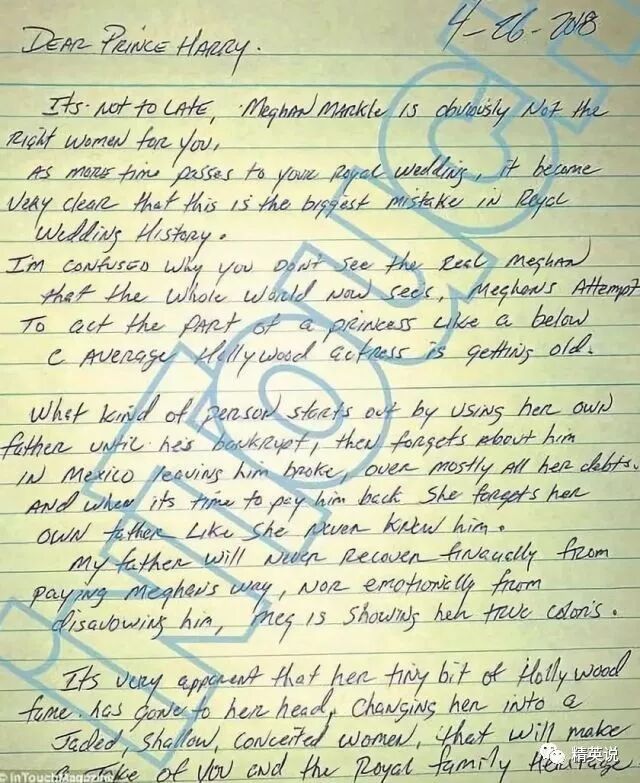 4-26-2018
DEAR PRINCE HARRY.
Its NOT TO LATE, MeghAN MARKle is obviously Not the
Right women for you.
As more time passes to your Royal wedding, it became
very clear that this is the biggest mistake in Royal
wedding History.
I'm confused why you Don't see the Real Meghan
that the whole would Now sees, Meghan's Attempt
To act the part of a princess like a below
C AVERAGE Hollywood actress is getting old.
What kind of person starts out by using her own
father until he's bankrupt, then forgets about him
IN Mexico leaving him broke, over mostly all her debts.
AND when its time to pay him back She forgets her
OWN father Like She Never Knew him.
My father will Never Recover finacially from
paying Meghan's way, NOR emotionally from
disavowing him, Meg is Showing her true colors.
Its very apparent that her tiny bit of Hollywood
fame has gone to her head, Changing her into a
Jaded, Shallow, conceited women, that will make
a Joke of you and the Royal family Heritage
INTOUCH
© InTouchMagazine
精英说